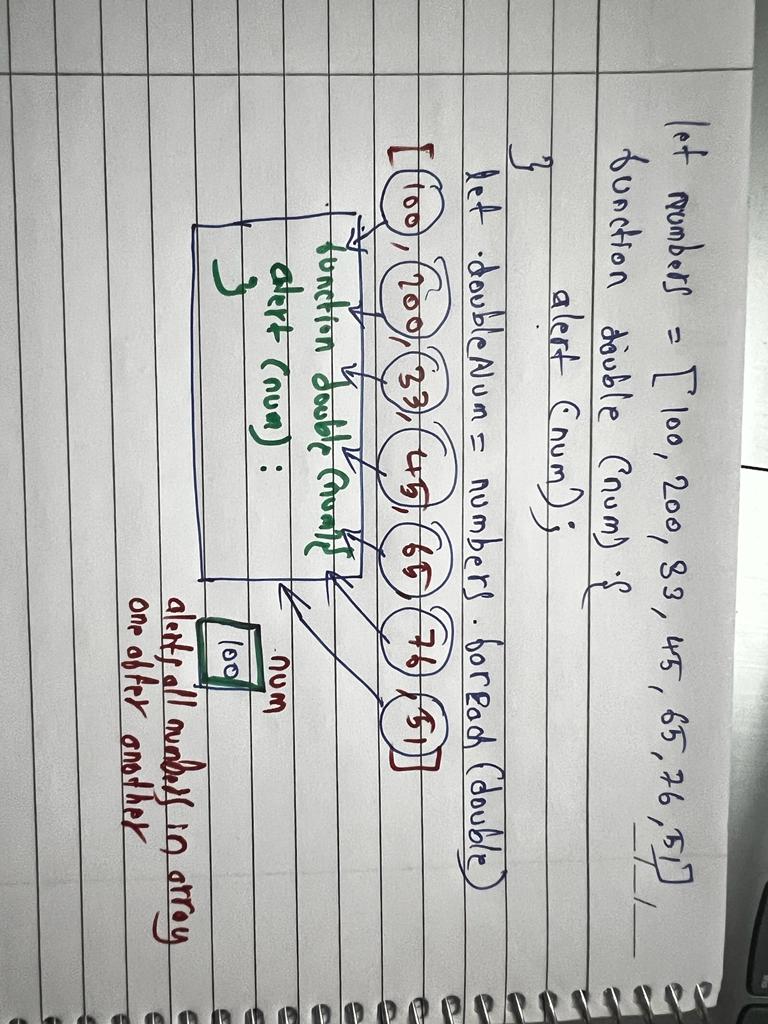 let numbers = [100, 200, 33, 45, 65, 76, 51]
function double (num) {
alert (num);
}
let doubleNum = numbers.forEach (double)
[100, 200, 33, 45, 65, 76, 51]
function double (num) {
alert (num) :
}
num
100
alerts all numbers in array
one after another